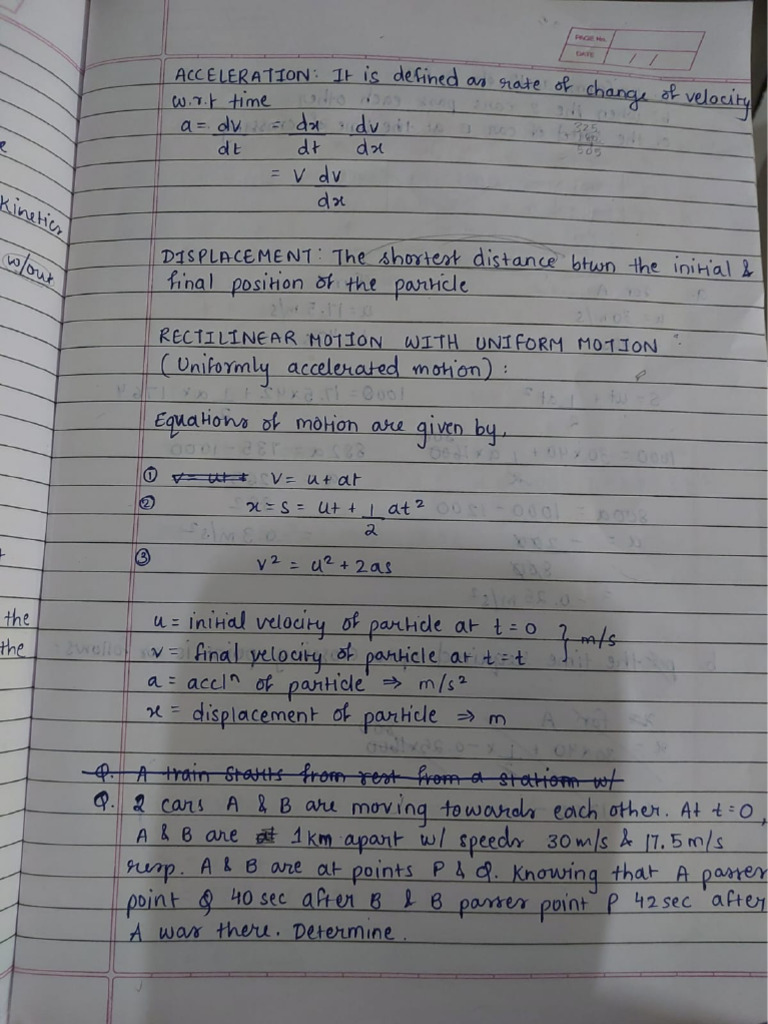 PAGE No.
DATE / /
ACCELERATION: It is defined as rate of change of velocity
w.r.t time
a = dv/dt = dx/dt dv/dx
= v dv/dx
Kinetics
w/out
DISPLACEMENT: The shortest distance btwn the initial &
final position of the particle
RECTILINEAR MOTION WITH UNIFORM MOTION
(Uniformly accelerated motion):
Equations of motion are given by,
① v = u + at
② x = s = ut + 1/2 at²
③ v² = u² + 2as
the
the
u = initial velocity of particle at t = 0 } m/s
v = final velocity of particle at t = t
a = acclⁿ of particle ⇒ m/s²
x = displacement of particle ⇒ m
Q. A train starts from rest from a station w/
Q. 2 cars A & B are moving towards each other. At t = 0,
A & B are 1 km apart w/ speeds 30 m/s & 17.5 m/s
resp. A & B are at points P & Q. Knowing that A passes
point Q 40 sec after B & B passes point P 42 sec after
A was there. Determine.